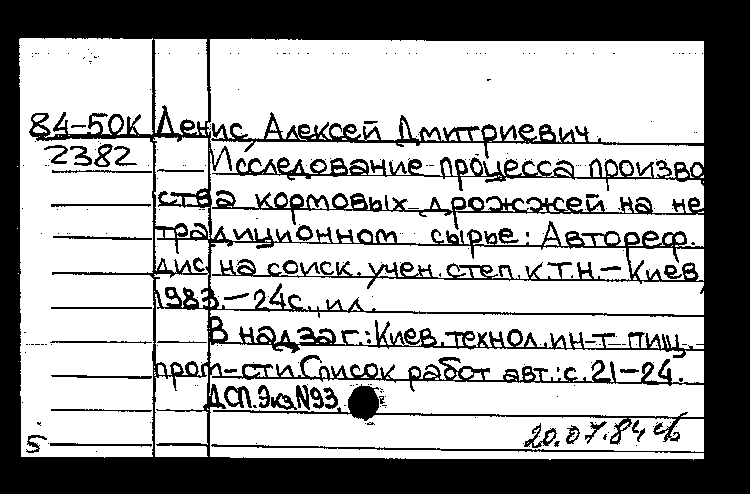 84-50К Денис, Алексей Дмитриевич.
2382 Исследование процесса произво
ства кормовых дрожжей на не
традиционном сырье: Автореф.
дис. на соиск. учен. степ. к.т.н. - Киев,
1983. - 24с., ил.
В надзаг.: Киев. технол. ин-т пищ.
пром-сти. Список работ авт.: с. 21-24.
ДСП. Экз. N93.
20.07.84
5